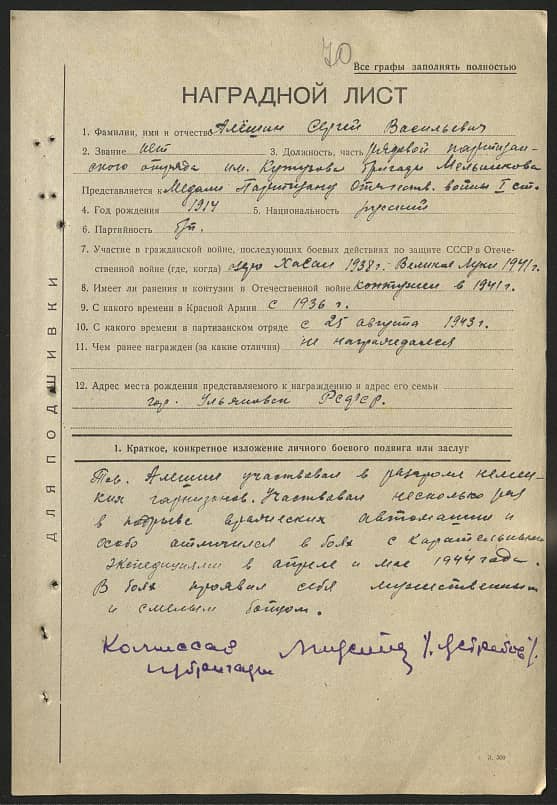 70
Все графы заполнять полностью
НАГРАДНОЙ ЛИСТ
1. Фамилия, имя и отчество Алёшин Сергей Васильевич
2. Звание нет 3. Должность, часть рядовой партизан-
ского отряда им. Кутузова бригады Мельникова
Представляется к Медали Партизану Отечеств. войны I ст.
4. Год рождения 1914 5. Национальность русский
6. Партийность б/п.
7. Участие в гражданской войне, последующих боевых действиях по защите СССР в Отече-
ственной войне (где, когда) озеро Хасан 1938г. Великие Луки 1941г.
8. Имеет ли ранения и контузии в Отечественной войне контузии в 1941г.
9. С какого времени в Красной Армии с 1936 г.
10. С какого времени в партизанском отряде с 25 августа 1943г.
11. Чем ранее награжден (за какие отличия) не награждался
12. Адрес места рождения представляемого к награждению и адрес его семьи
гор. Ульяновск РСФСР.
ДЛЯ ПОДШИВКИ
1. Краткое, конкретное изложение личного боевого подвига или заслуг
Тов. Алешин участвовал в разгроме немец-
ких гарнизонов. Участвовал несколько раз
в подрыве вражеских автомашин и
особо отличился в боях с карательными
экспедициями в апреле и мае 1944 года.
В боях проявил себя мужественным
и смелым бойцом.
Комиссар
партбригады /Ястребов/.
З. 300